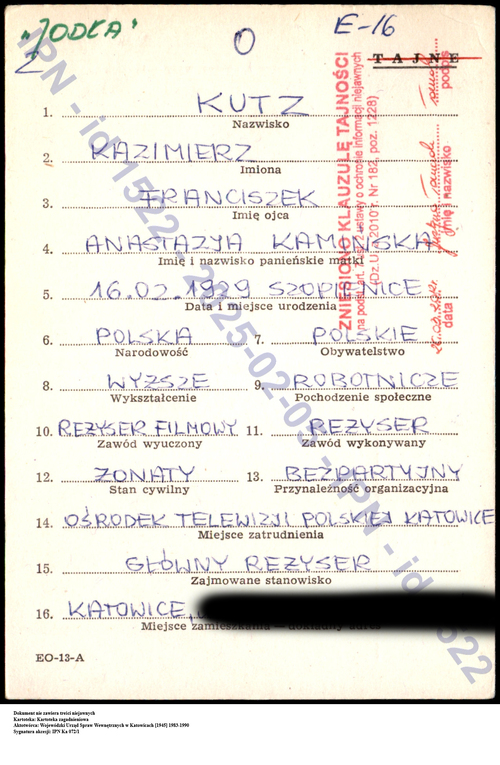 "JODŁA"
O
E-16
TAJNE
1. KUTZ
Nazwisko
2. KAZIMIERZ
Imiona
3. FRANCISZEK
Imię ojca
4. ANASTAZJA KAMIŃSKA
Imię i nazwisko panieńskie matki
5. 16.02.1929 SZOPIENICE
Data i miejsce urodzenia
6. POLSKA 7. POLSKIE
Narodowość Obywatelstwo
8. WYŻSZE 9. ROBOTNICZE
Wykształcenie Pochodzenie społeczne
10. REŻYSER FILMOWY 11. REŻYSER
Zawód wyuczony Zawód wykonywany
12. ŻONATY 13. BEZPARTYJNY
Stan cywilny Przynależność organizacyjna
14. OŚRODEK TELEWIZJI POLSKIEJ KATOWICE
Miejsce zatrudnienia
15. GŁÓWNY REŻYSER
Zajmowane stanowisko
16. KATOWICE,
Miejsce zamieszkania — dokładny adres
EO-13-A
ZNIESIONO KLAUZULĘ TAJNOŚCI
na podst. art. ustawy o ochronie informacji niejawnych
(Dz. U. z 2010 r. Nr 182, poz. 1228)
data imię i nazwisko podpis
IPN - id 1522 - 2025-02-03 - IPN - id 1522
Dokument nie zawiera treści niejawnych
Kartoteka: Kartoteka zagadnieniowa
Aktotwórca: Wojewódzki Urząd Spraw Wewnętrznych w Katowicach [1945] 1983-1990
Sygnatura akcesji: IPN Ka 072/1